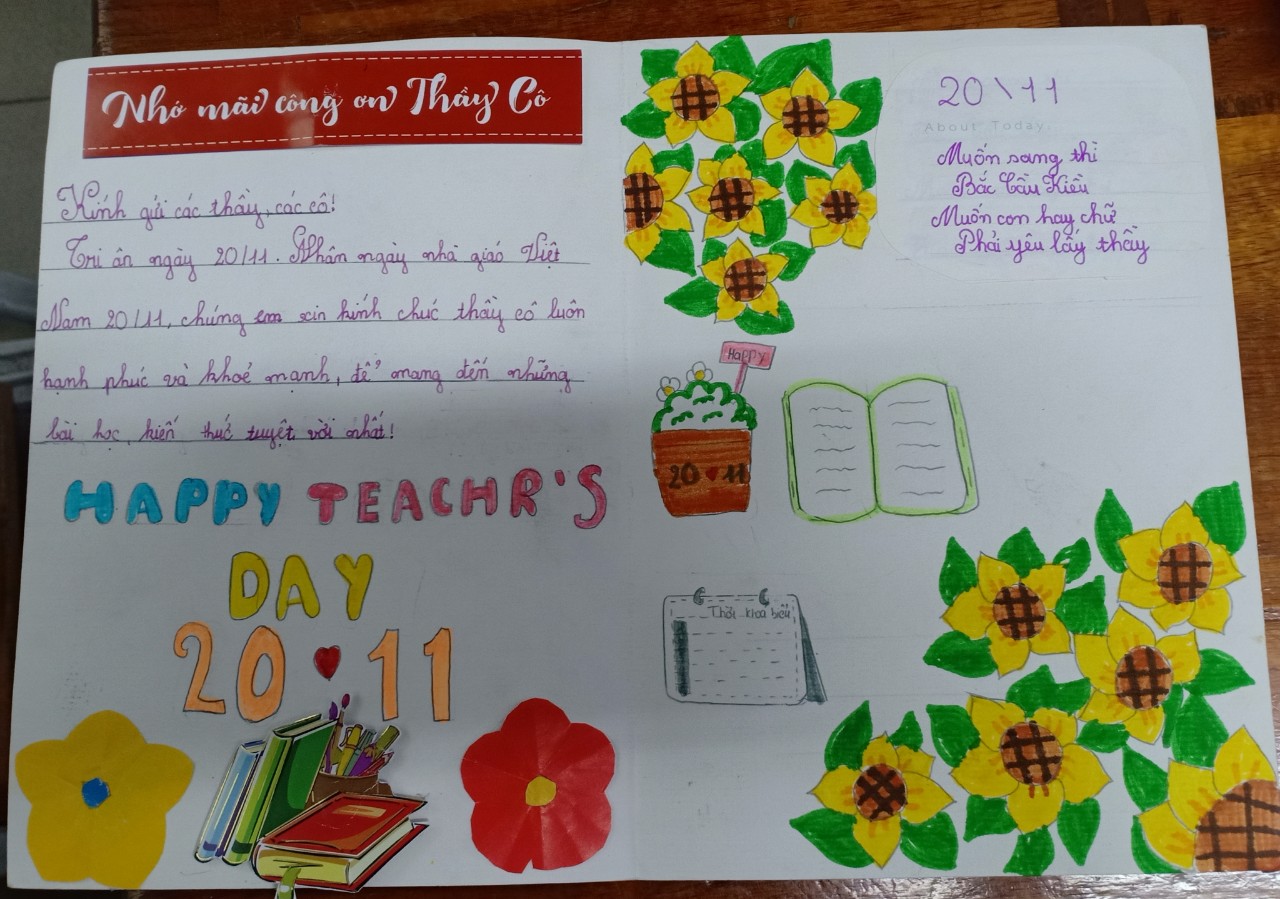 Nhớ mãi công ơn Thầy Cô
Kính gửi các thầy, các cô!
Tri ân ngày 20/11. Nhân ngày nhà giáo Việt
Nam 20/11, chúng em xin kính chúc thầy cô luôn
hạnh phúc và khoẻ mạnh, để mang đến những
bài học, kiến thức tuyệt vời nhất!
HAPPY TEACHR'S
DAY
20 ♥ 11
20\11
About Today.
Muốn sang thì
Bắc Cầu Kiều
Muốn con hay chữ
Phải yêu lấy thầy
Happy
20 ♥ 11
Thời khoá biểu